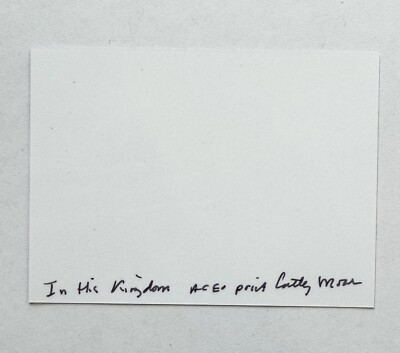 In His Kingdom ACEO print Cathy